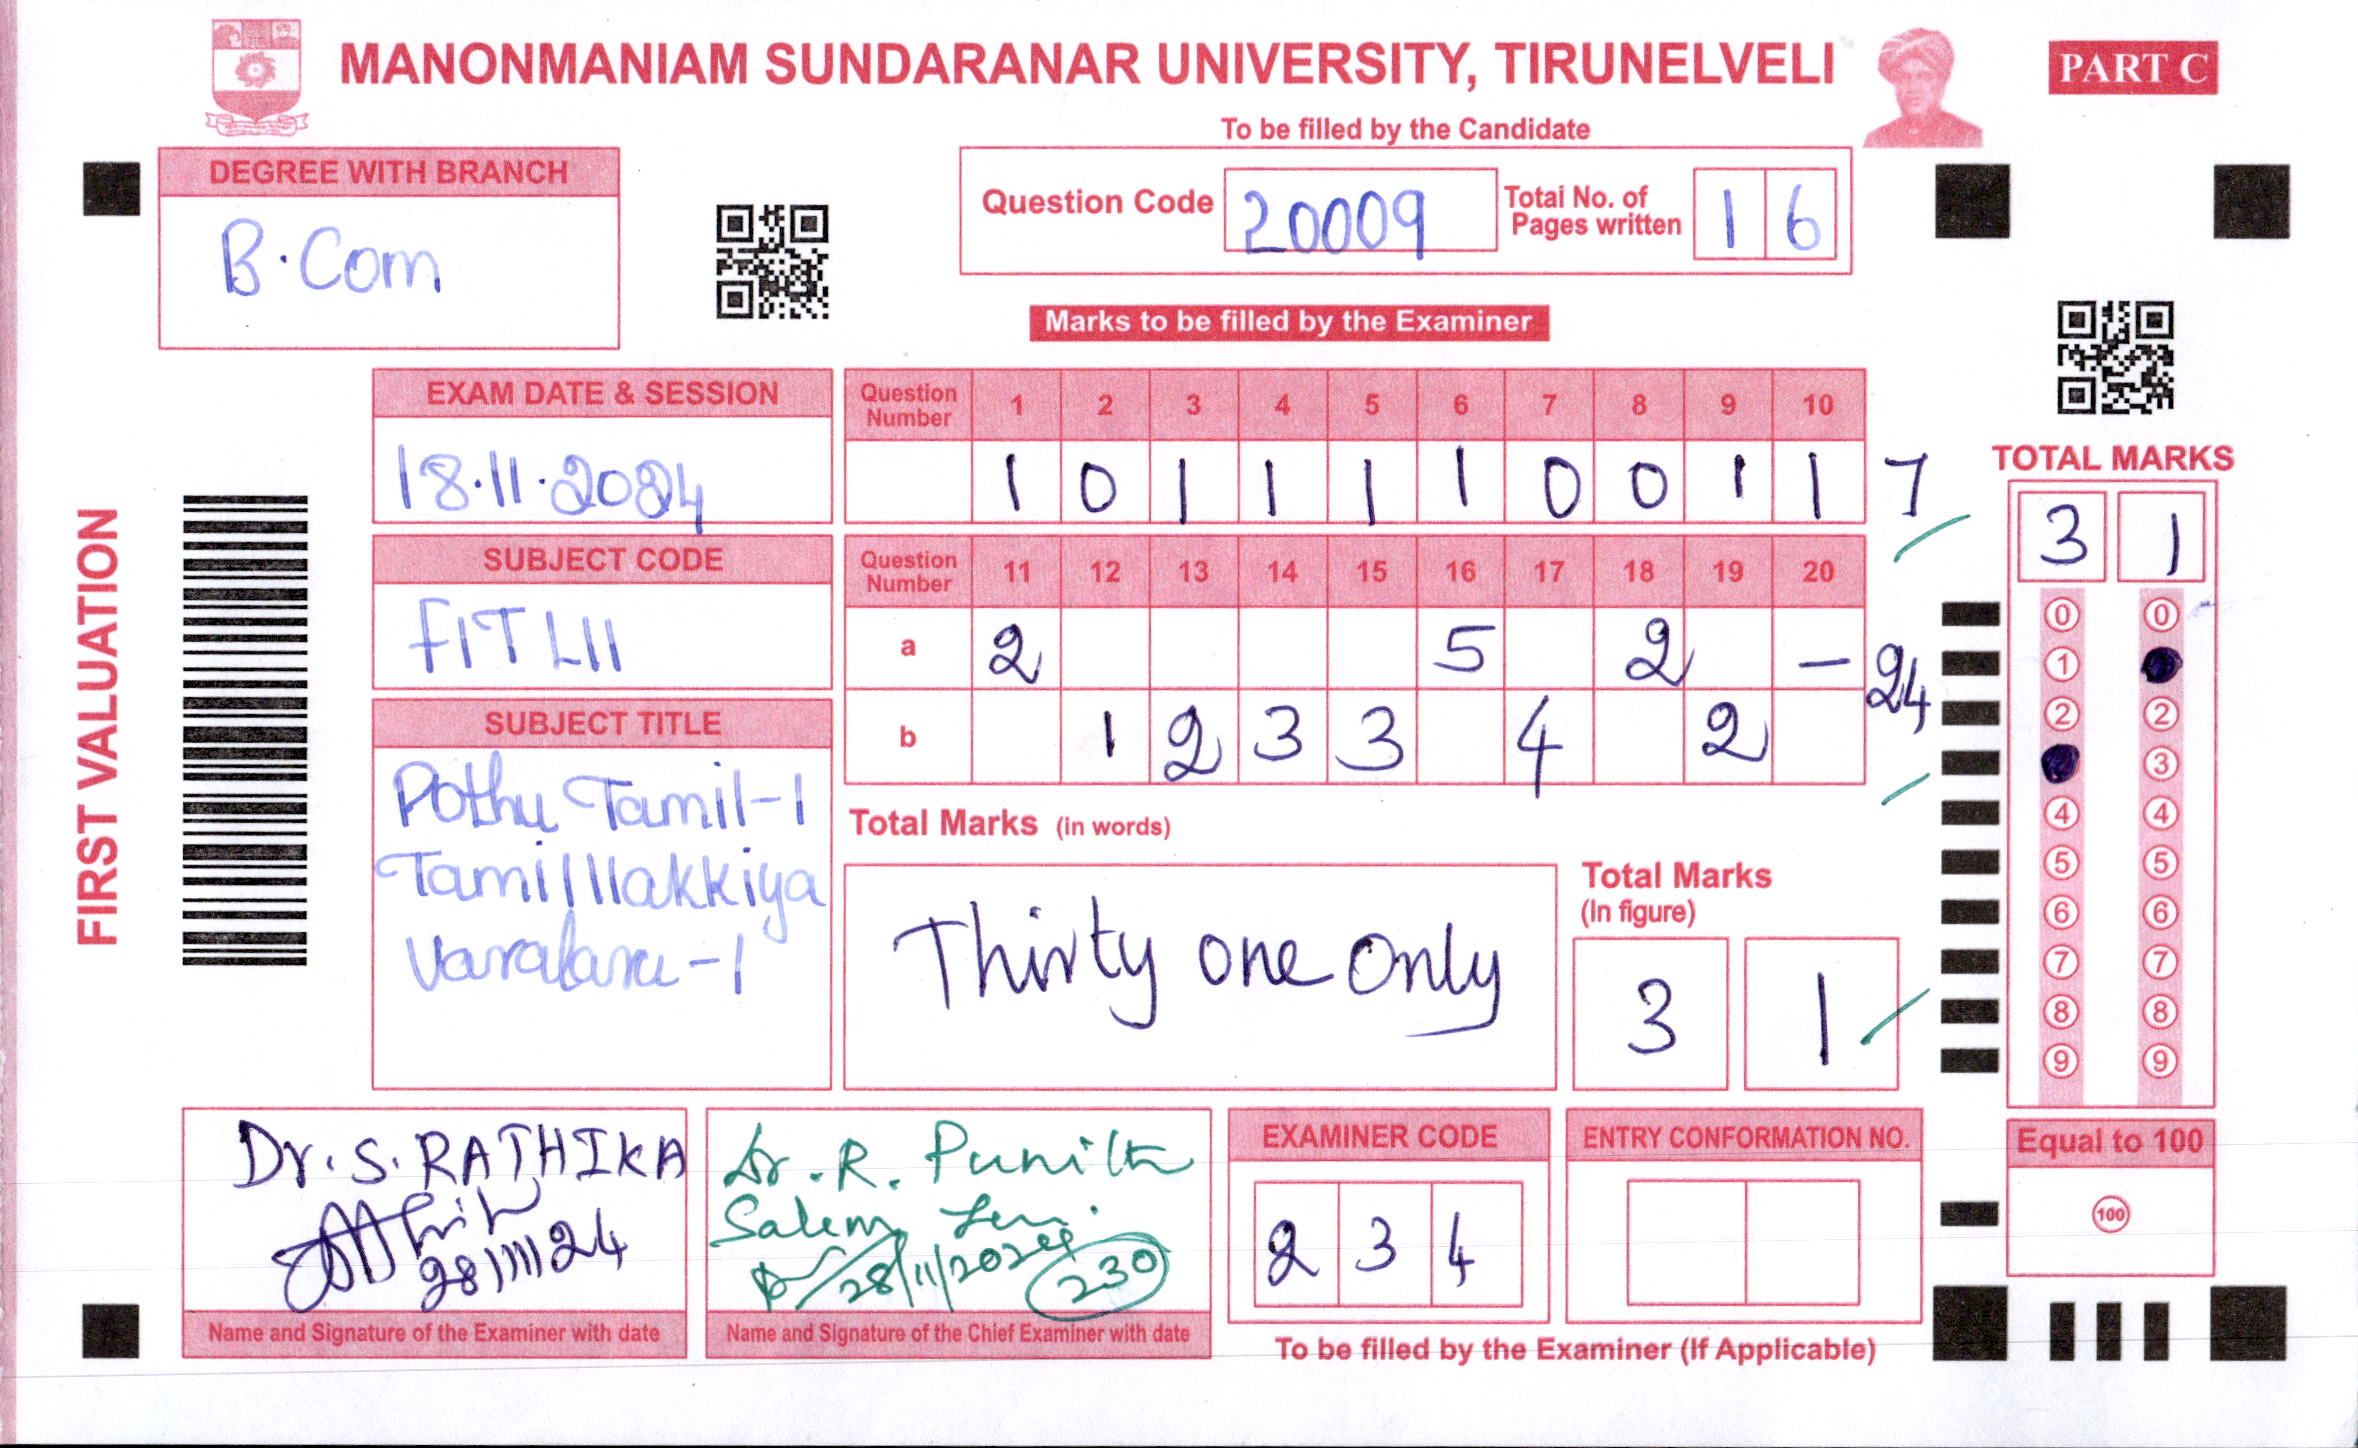 MANONMANIAM SUNDARANAR UNIVERSITY, TIRUNELVELI
PART C
To be filled by the Candidate
DEGREE WITH BRANCH
B.Com
Question Code 20009 Total No. of Pages written 16
Marks to be filled by the Examiner
FIRST VALUATION
EXAM DATE & SESSION
18.11.2024
SUBJECT CODE
FITL11
SUBJECT TITLE
Pothu Tamil-1
Tamil Ilakkiya
Varalaru-1
Question Number 1 2 3 4 5 6 7 8 9 10
1 0 1 1 1 1 0 0 1 1 7
Question Number 11 12 13 14 15 16 17 18 19 20
a 2 5 2 - 24
b 1 2 3 3 4 2
Total Marks (in words)
Thirty one Only
Total Marks (In figure)
3 1
TOTAL MARKS
3 1
0 0
1
2 2
3
4 4
5 5
6 6
7 7
8 8
9 9
Equal to 100
100
Dr. S. RATHIKA
28/11/24
Name and Signature of the Examiner with date
Dr. R. Punitha
Salem
28/11/2024 230
Name and Signature of the Chief Examiner with date
EXAMINER CODE
2 3 4
ENTRY CONFORMATION NO.
To be filled by the Examiner (If Applicable)